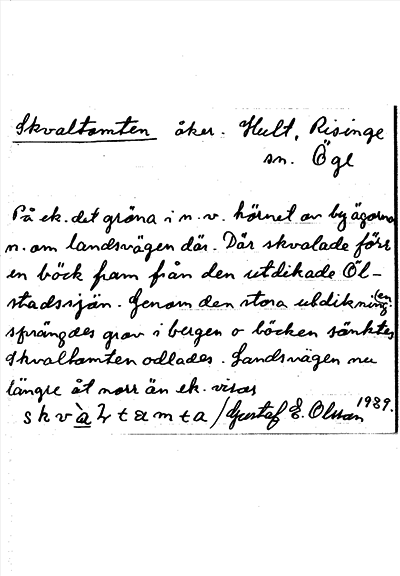 Skvaltomten åker. Hult, Risinge
sn. Ögl
På ek. det gröna i n.v. hörnet av byägorna
n. om landsvägen där. Där skvalade förr
en böck fram från den utdikade Öl-
stadssjön. Genom den stora utdikningen
sprängdes grav i bergen o böcken sänktes
Skvaltomten odlades. Landsvägen nu
längre åt norr än ek. visar
skvàltamta / Gustaf E. Olsson 1989.